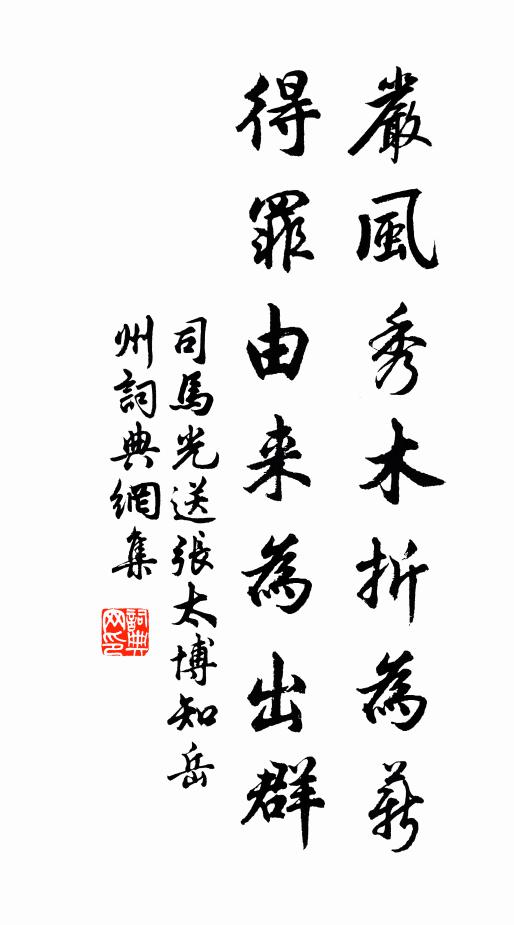 嚴風秀木折為薪
得罪由来為出群
司馬光送張太博知岳
州詞典網集
詞典網印